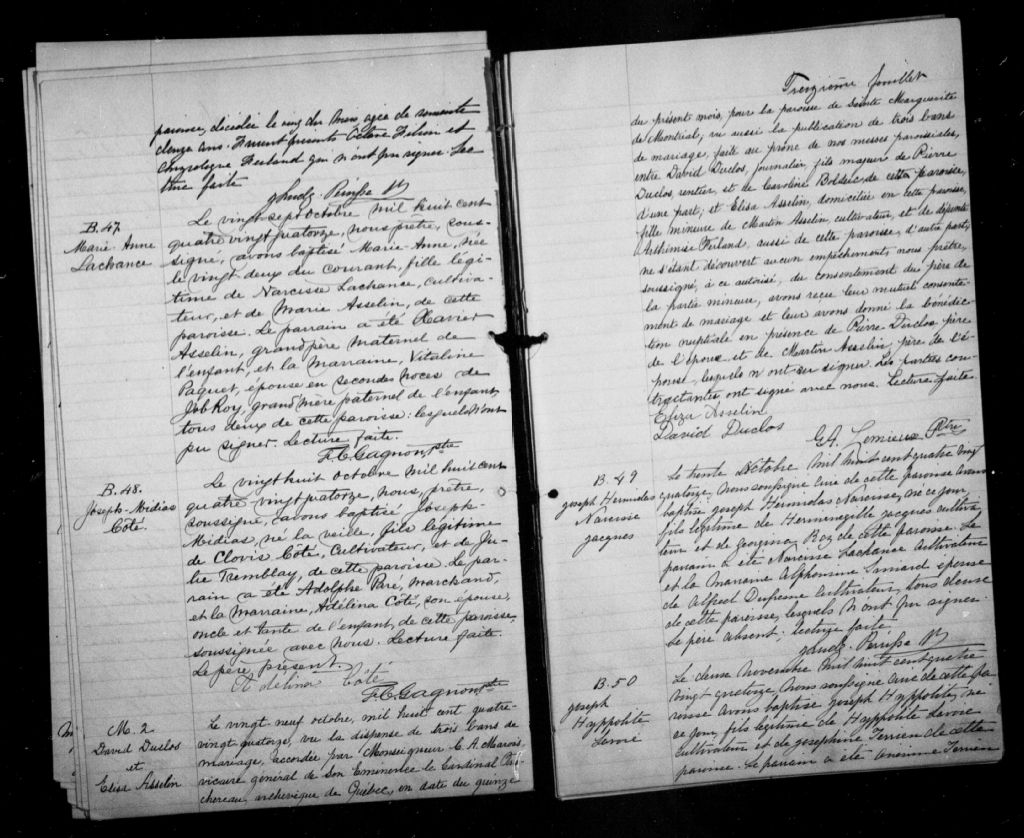 paroisse, décédée le cinq du mois, agée de soixante
douze ans. Furent présents Octave Filion et
Ferland qui n'ont pu signer. Lec
ture faite
B. 47.
Marie Anne
Lachance
Le vingt sept Octobre mil huit cent
quatre vingt quatorze, nous prêtre, sous-
signé, avons baptisé Marie-Anne, née
le vingt deux du courant, fille légi-
time de Narcisse Lachance, cultiva-
teur, et de Marie Asselin, de cette
paroisse. Le parrain a été Xavier
Asselin, grand père maternel de
l'enfant, et la Marraine, Vitaline
Paquet, épouse en secondes noces de
Job Roy, grand'mère paternel de l'enfant,
tous deux de cette paroisse: lesquels n'ont
pu signer. Lecture faite.
F. C. Gagnon ptre
B. 48.
Joseph-Midias
Côté.
Le vingt huit octobre mil huit cent
quatre vingt quatorze, nous, prêtre,
soussigné, avons baptisé Joseph-
Midias, né la veille, fils légitime
de Clovis Côté, cultivateur, et de Ju-
lie Tremblay, de cette paroisse. Le par-
rain a été Adolphe Paré, marchand,
et la Marraine, Adélina Coté, son épouse,
oncle et tante de l'enfant, de cette paroisse
soussignée avec nous. Lecture faite.
Le père présent.
Adélina Coté
F. C. Gagnon ptre
M. 2
David Duclos
et
Elisa Asselin
Le vingt neuf octobre, mil huit cent quatre-
vingt quatorze, vu la dispense de trois bans de
mariage, accordée par Monseigneur C. A. Marois
vicaire général de Son Eminence le Cardinal Tas-
chereau, archevêque de Québec, en date du quinze
Treizième feuillet
du présent mois, pour la paroisse de Sainte Marguerite
de Montréal; vu aussi la publication de trois bans
de mariage, faite au prône de nos messes paroissiales,
entre David Duclos, journalier, fils majeur de Pierre
Duclos rentier, et de Caroline Bolduc de cette Paroisse,
d'une part; et Elisa Asselin, domiciliée en cette paroisse,
fille mineure de Martin Asselin, cultivateur, et de défunte
Arthimise Ferland, aussi de cette paroisse, d'autre part;
ne s'étant découvert aucun empêchement, nous prêtre,
soussigné, à ce autorisé, du consentement du père de
la partie mineure, avons reçu leur mutuel consente-
ment de mariage et leur avons donné la bénédic-
tion nuptiale en présence de Pierre Duclos père
de l'époux et de Martin Asselin, père de l'é-
pouse, lesquels n'ont su signer. Les parties con-
tractantes ont signé avec nous. Lecture faite.
Eliza Asselin
David Duclos
G. A. Lemieux Ptre
B. 49
joseph Hermidas
Narcisse
jacques
Le trente Octobre mil huit cent quatre vingt
quatorze, nous soussigné curé de cette paroisse avons
baptisé joseph Hermidas Narcisse, né ce jour,
fils légitime de Hermenegille jacques cultiva
teur et de georgina Roy de cette paroisse. Le
parrain a été Narcisse Lachance cultivateur
et la marraine Alphonsine Simard épouse
de Alfred Dufresne cultivateur, tous deux
de cette paroisse, lesquels n'ont pu signer.
Le père absent. lecture faite.
B. 50
joseph
Hyppolite
Le deux novembre mil huit cent quatre
vingt quatorze, nous soussigné curé de cette pa
roisse avons baptisé joseph Hyppolite, né
ce jour, fils légitime de Hyppolite
cultivateur et de josephine Terrien de cette
paroisse. Le parrain a été Terrien